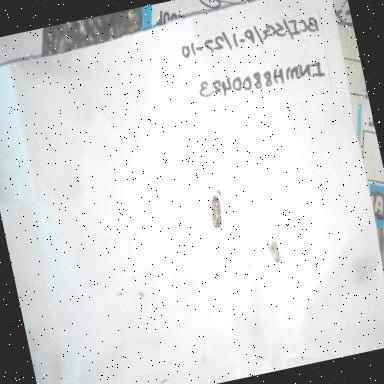 BCI/SS/P-1/27-10
INMH8800423